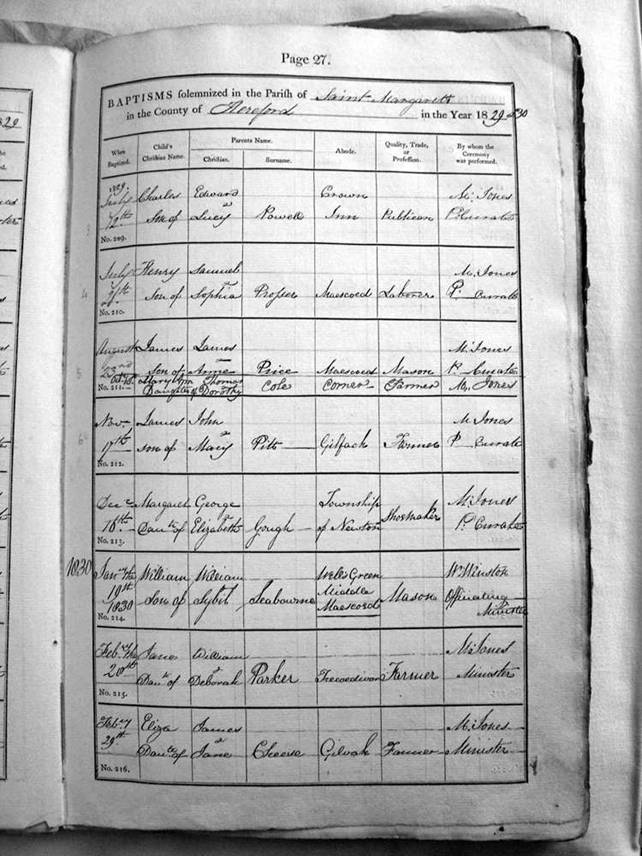 Page 27.
BAPTISMS solemnized in the Parish of Saint Margarets
in the County of Hereford in the Year 1829 & 30
When Baptized. Child's Christian Name. Parents Name. Christian. Surname. Abode. Quality, Trade, or Profession. By whom the Ceremony was performed.
1829
July Charles Edward Crown M. Jones
12th Son of & Lucy Powell Inn Publican P. Curate
No. 209.
July Henry Samuel M. Jones
Son of Sophia Prosser Maescoed Laborer P. Curate
No. 210.
August James James M. Jones
23rd Son of Anne Price Maescoed Mason P. Curate
Mary Ann Thomas Cole Corner Farmer M. Jones
No. 211. Daughter of Dorothy
Nov. James John M. Jones
17th son of & Mary Pitt Gilfach Farmer P. Curate
No. 212.
Dec Margaret George Township Shoemaker M. Jones
16th Daur. of & Elizabeth Gough of Newton P. Curate
No. 213.
1830 Jany. the William William Wells Green W. Winston
19th son of Sybil Seabourne Middle Mason Officiating
1830 Maescoed Minister
No. 214.
Feby. the Jane William M. Jones
20th Daur. of Deborah Parker Farmer Minister
No. 215.
Feby Eliza James M. Jones
Daur. of & Jane Cheese Gilvah Farmer Minister
No. 216.